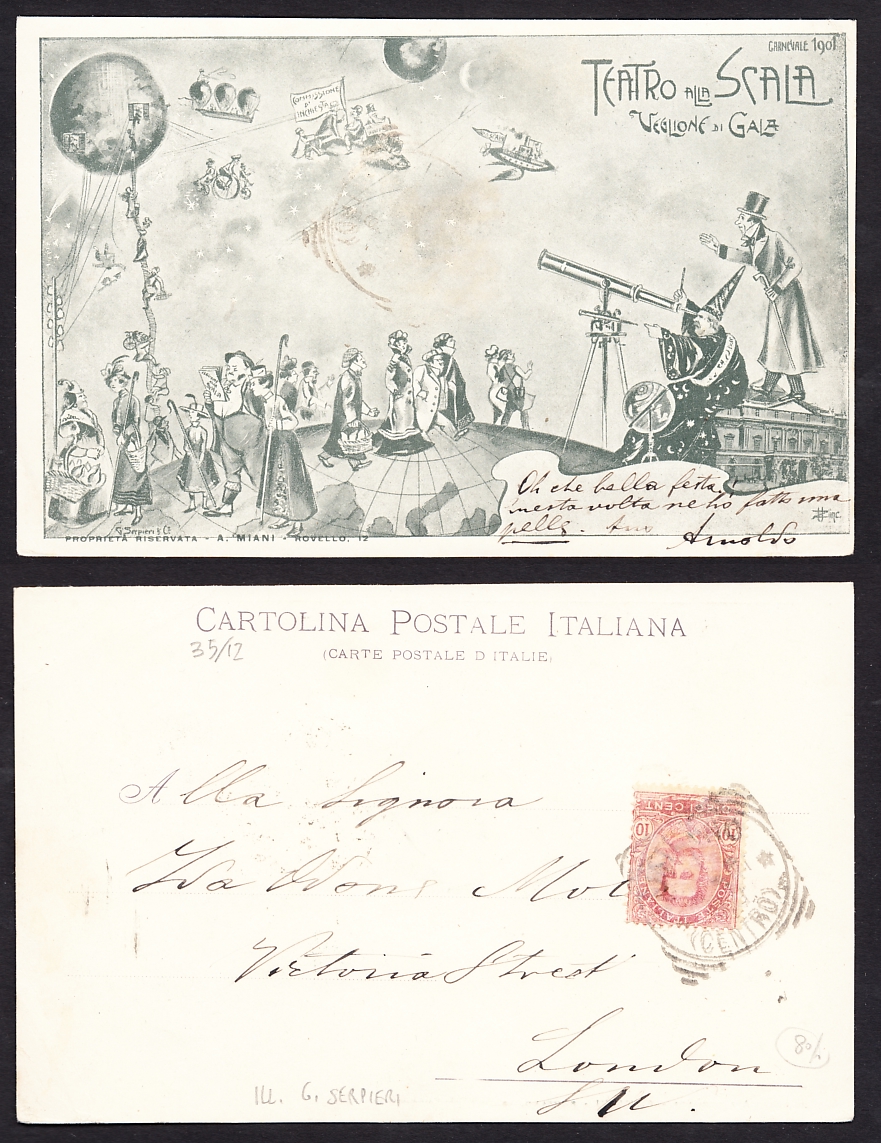 CARNEVALE 1901
TEATRO ALLA SCALA
VEGLIONE DI GALA
COMMISSIONE
D'INCHIESTA
Oh che bella festa!
questa volta ne ho fatto una
pelle.
Arnoldo
G. Serpieri & C.
PROPRIETÀ RISERVATA - A. MIANI - ROVELLO, 12
inc.
CARTOLINA POSTALE ITALIANA
35/12
(CARTE POSTALE D ITALIE)
Alla Signora
Ida
Victoria Street
London
10 CENT 10
POSTE ITALIANE
(CENTRO)
80/
S W.
Ill. G. SERPIERI